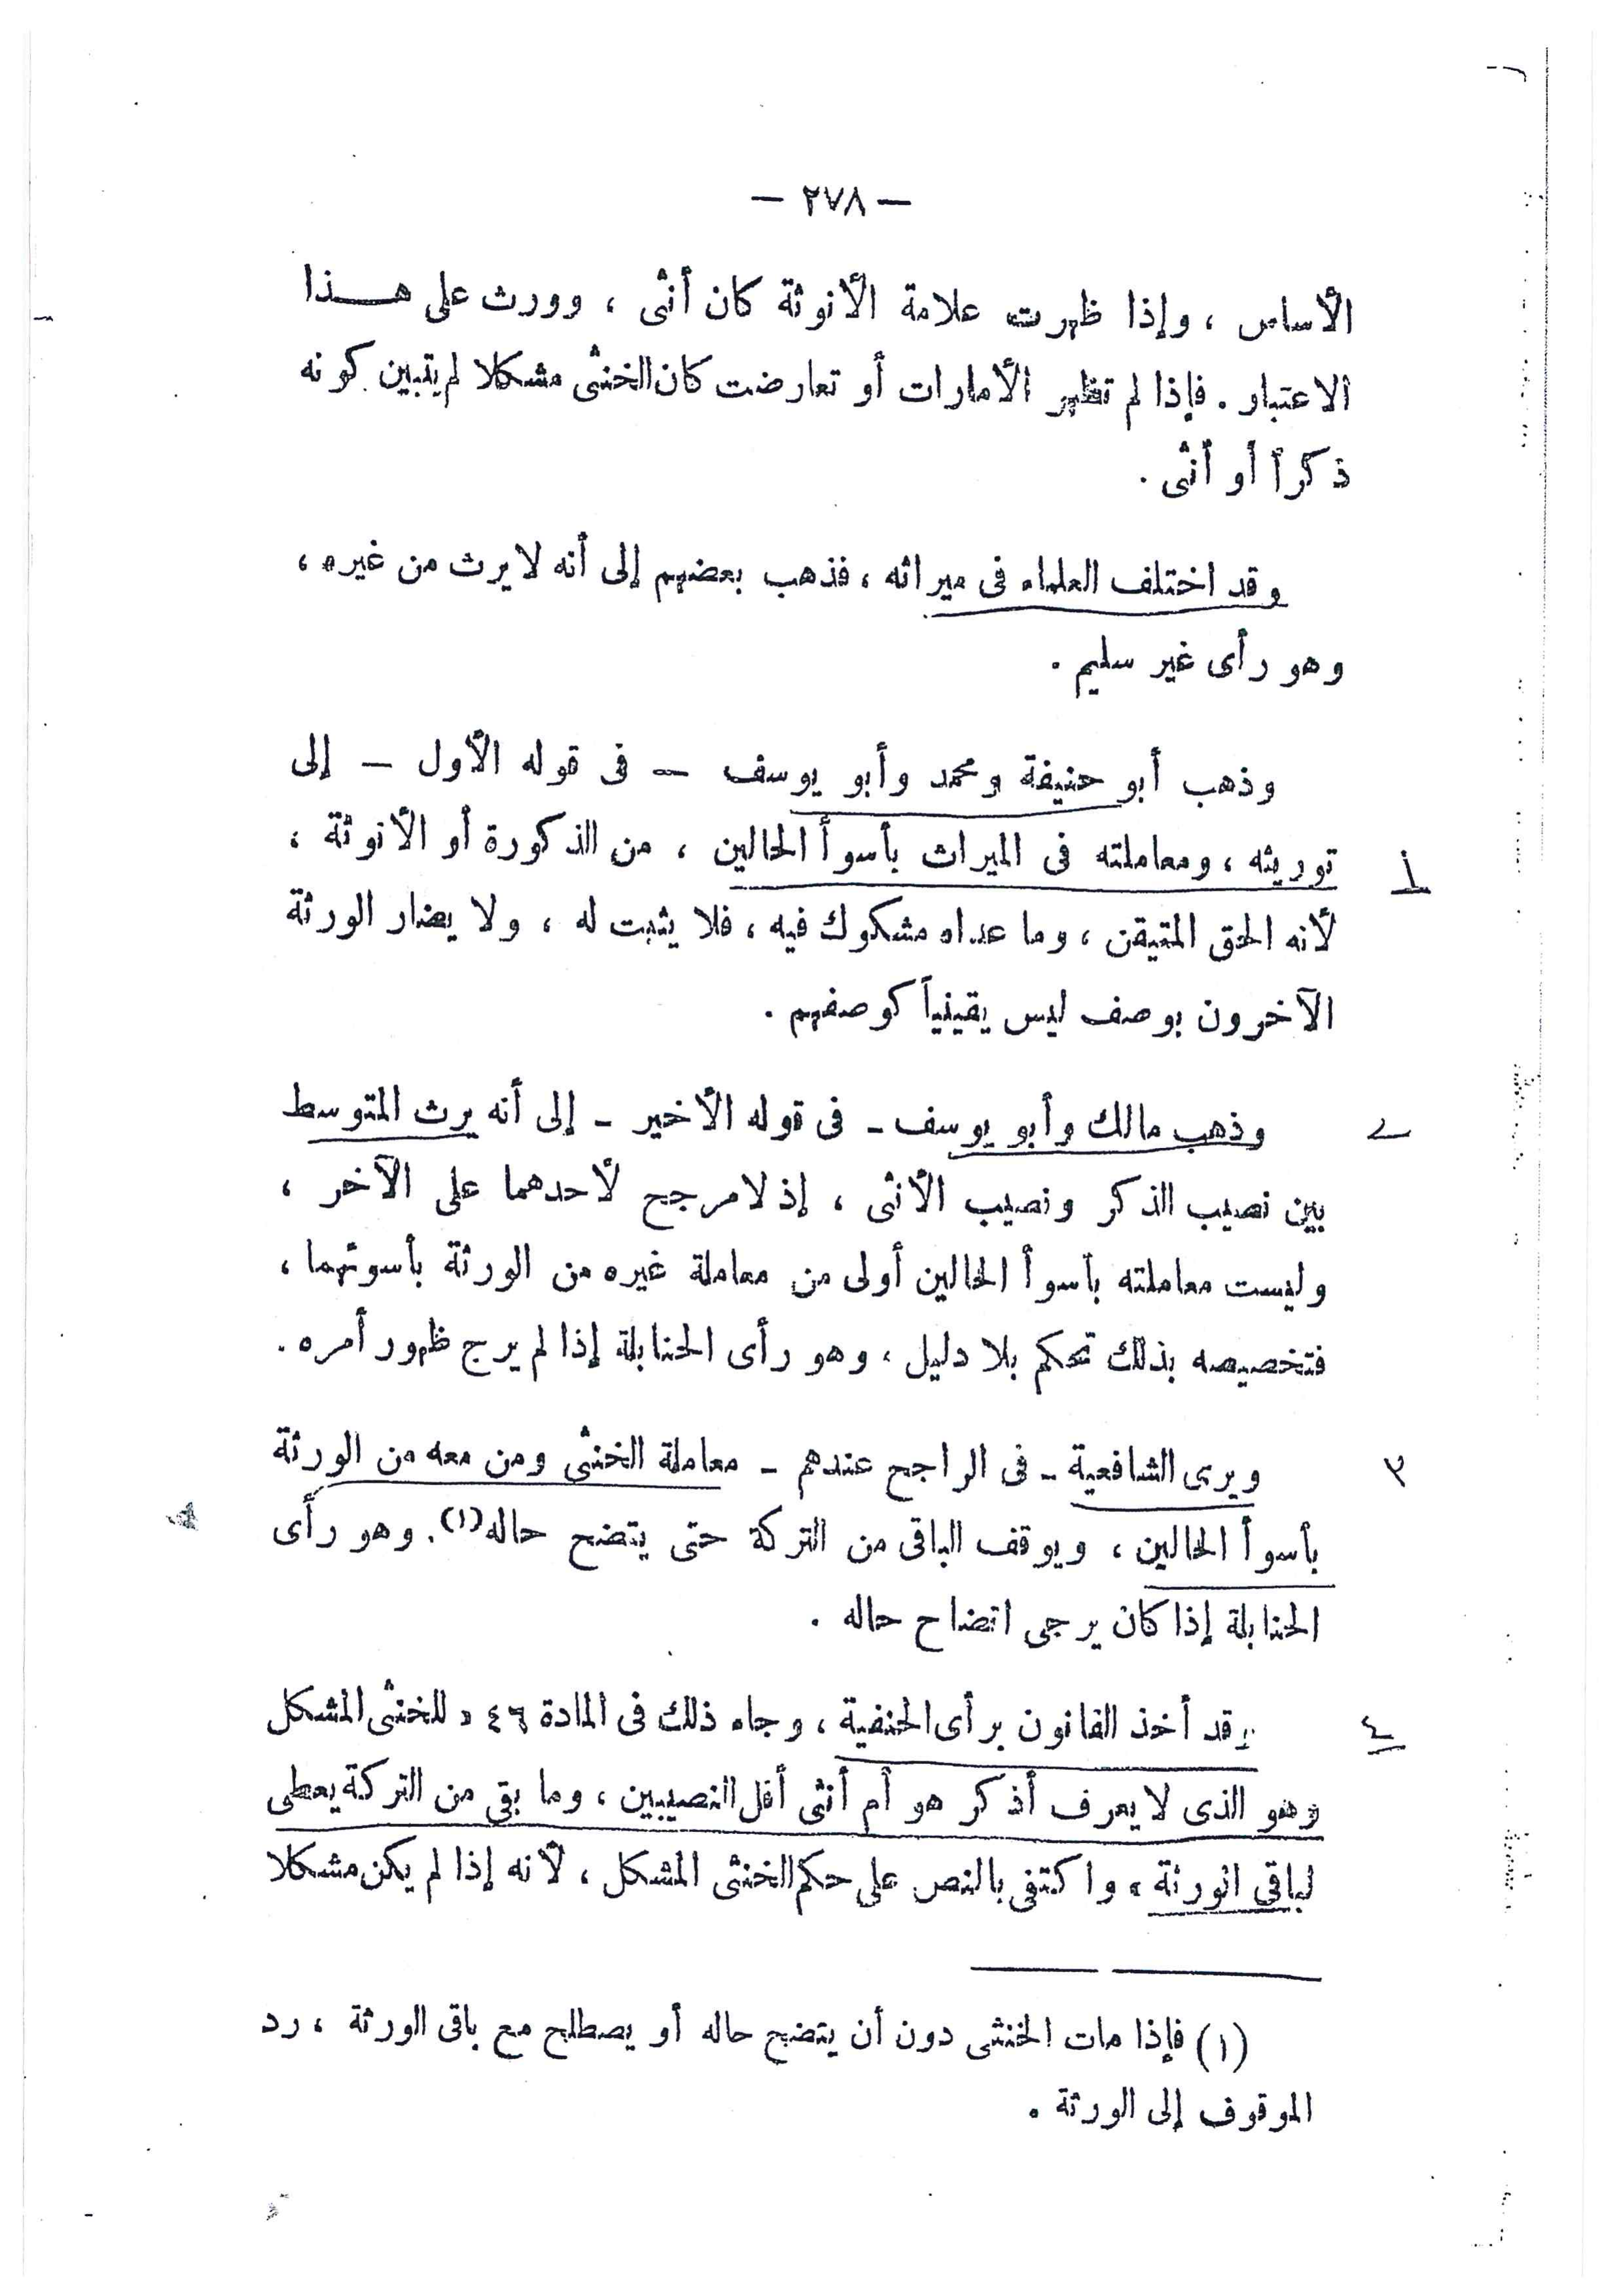 — ٢٧٨ —
الأساس ، وإذا ظهرت علامة الأنوثة كان أنثى ، وورث على هـــذا
الاعتبار . فإذا لم تظهر الأمارات أو تعارضت كان الخنثى مشكلا لم يتبين كونه
ذكراً أو أنثى .
وقد اختلف العلماء فى ميراثه ، فذهب بعضهم إلى أنه لا يرث من غيره ،
وهو رأى غير سليم .
وذهب أبو حنيفة ومحمد وأبو يوسف — فى قوله الأول — إلى
١ توريثه ، ومعاملته فى الميراث بأسوأ الحالين ، من الذكورة أو الأنوثة ،
لأنه الحق المتيقن ، وما عداه مشكوك فيه ، فلا يثبت له ، ولا يضار الورثة
الآخرون بوصف ليس يقينياً كوصفهم .
٢ وذهب مالك وأبو يوسف - فى قوله الأخير - إلى أنه يرث المتوسط
بين نصيب الذكر ونصيب الأنثى ، إذ لا مرجح لأحدهما على الآخر ،
وليست معاملته بأسوأ الحالين أولى من معاملة غيره من الورثة بأسوئهما ،
فتخصيصه بذلك تحكم بلا دليل ، وهو رأى الحنابلة إذا لم يرج ظهور أمره .
٣ ويرى الشافعية - فى الراجح عندهم - معاملة الخنثى ومن معه من الورثة
بأسوأ الحالين ، ويوقف الباقى من التركة حتى يتضح حاله (١) . وهو رأى
الحنابلة إذا كان يرجى اتضاح حاله .
٤ وقد أخذ القانون برأى الحنفية ، وجاء ذلك فى المادة ٤٦ « للخنثى المشكل
وهو الذى لا يعرف أذكر هو أم أنثى أقل النصيبين ، وما بقى من التركة يعطى
لباقى الورثة » واكتفى بالنص على حكم الخنثى المشكل ، لأنه إذا لم يكن مشكلا
(١) فإذا مات الخنثى دون أن يتضح حاله أو يصطلح مع باقى الورثة ، رد
الموقوف إلى الورثة .